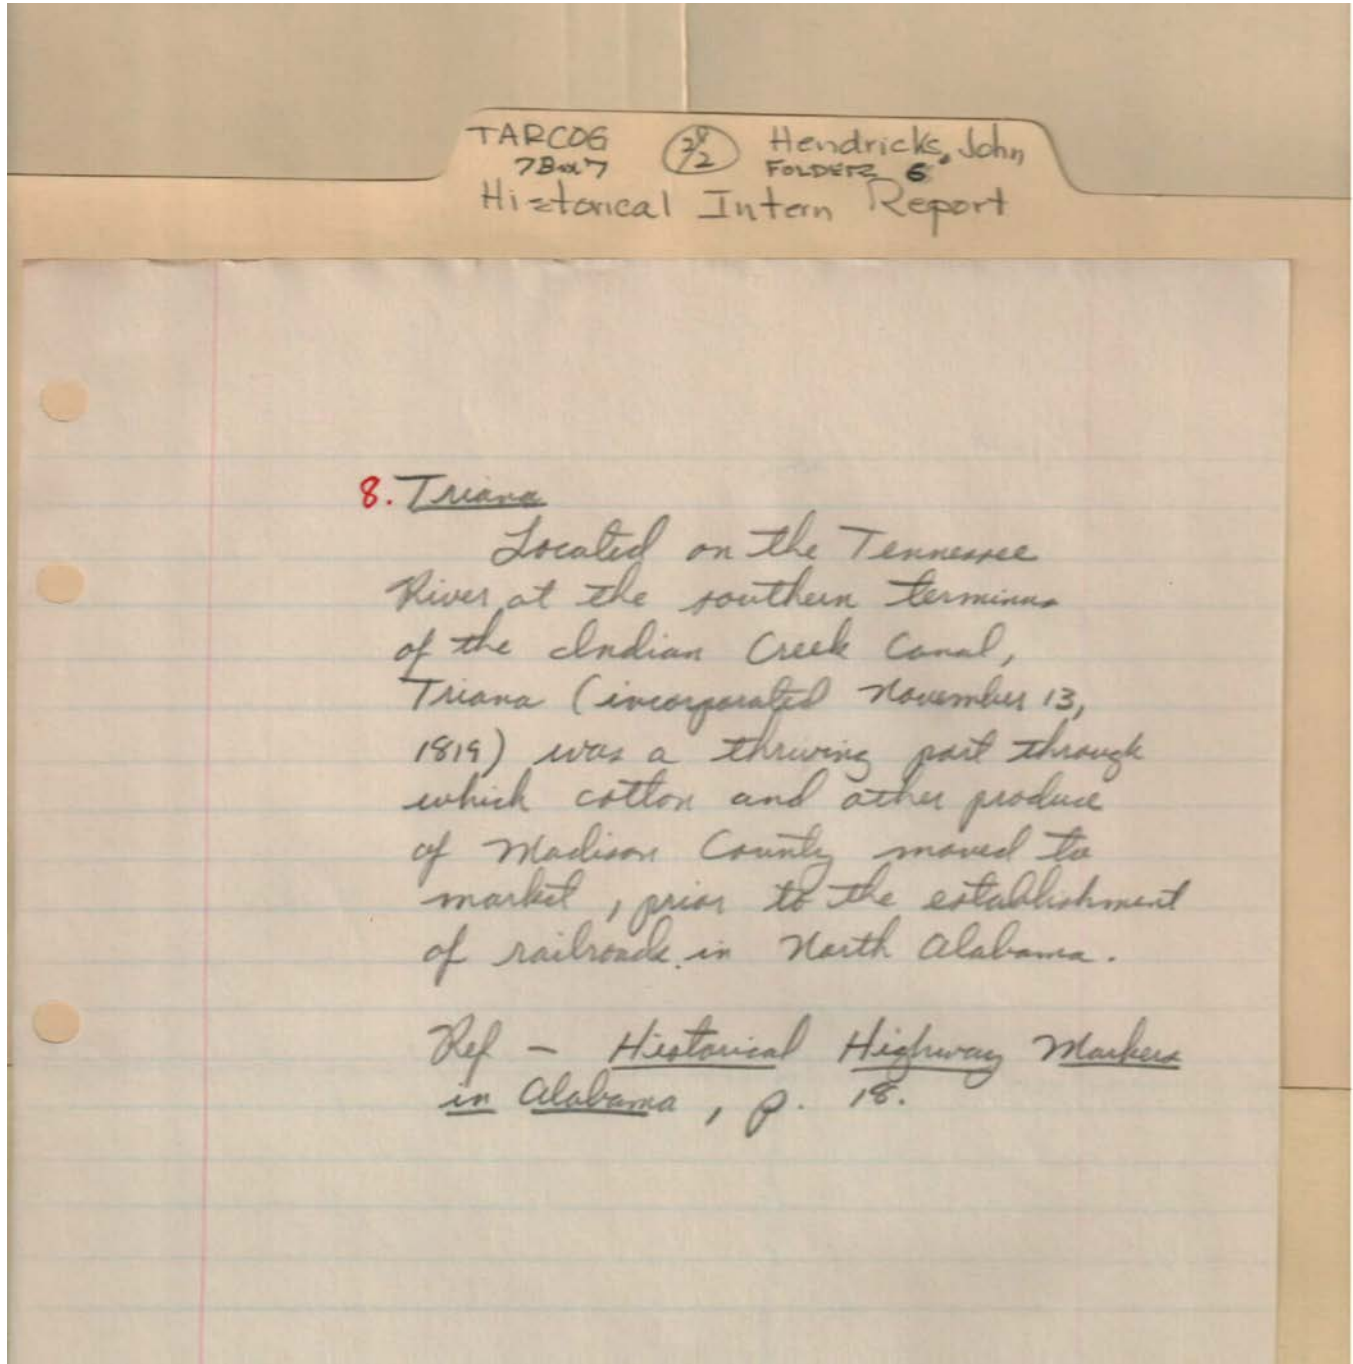 TARCOG 2/2 Hendricks, John
7Box7 FOLDER 6
Historical Intern Report
8. Triana
Located on the Tennessee
River, at the southern terminus
of the Indian Creek Canal,
Triana (incorporated November 13,
1819) was a thriving port through
which cotton and other produce
of Madison County moved to
market, prior to the establishment
of railroads in North Alabama.
Ref - Historical Highway Markers
in Alabama, p. 18.